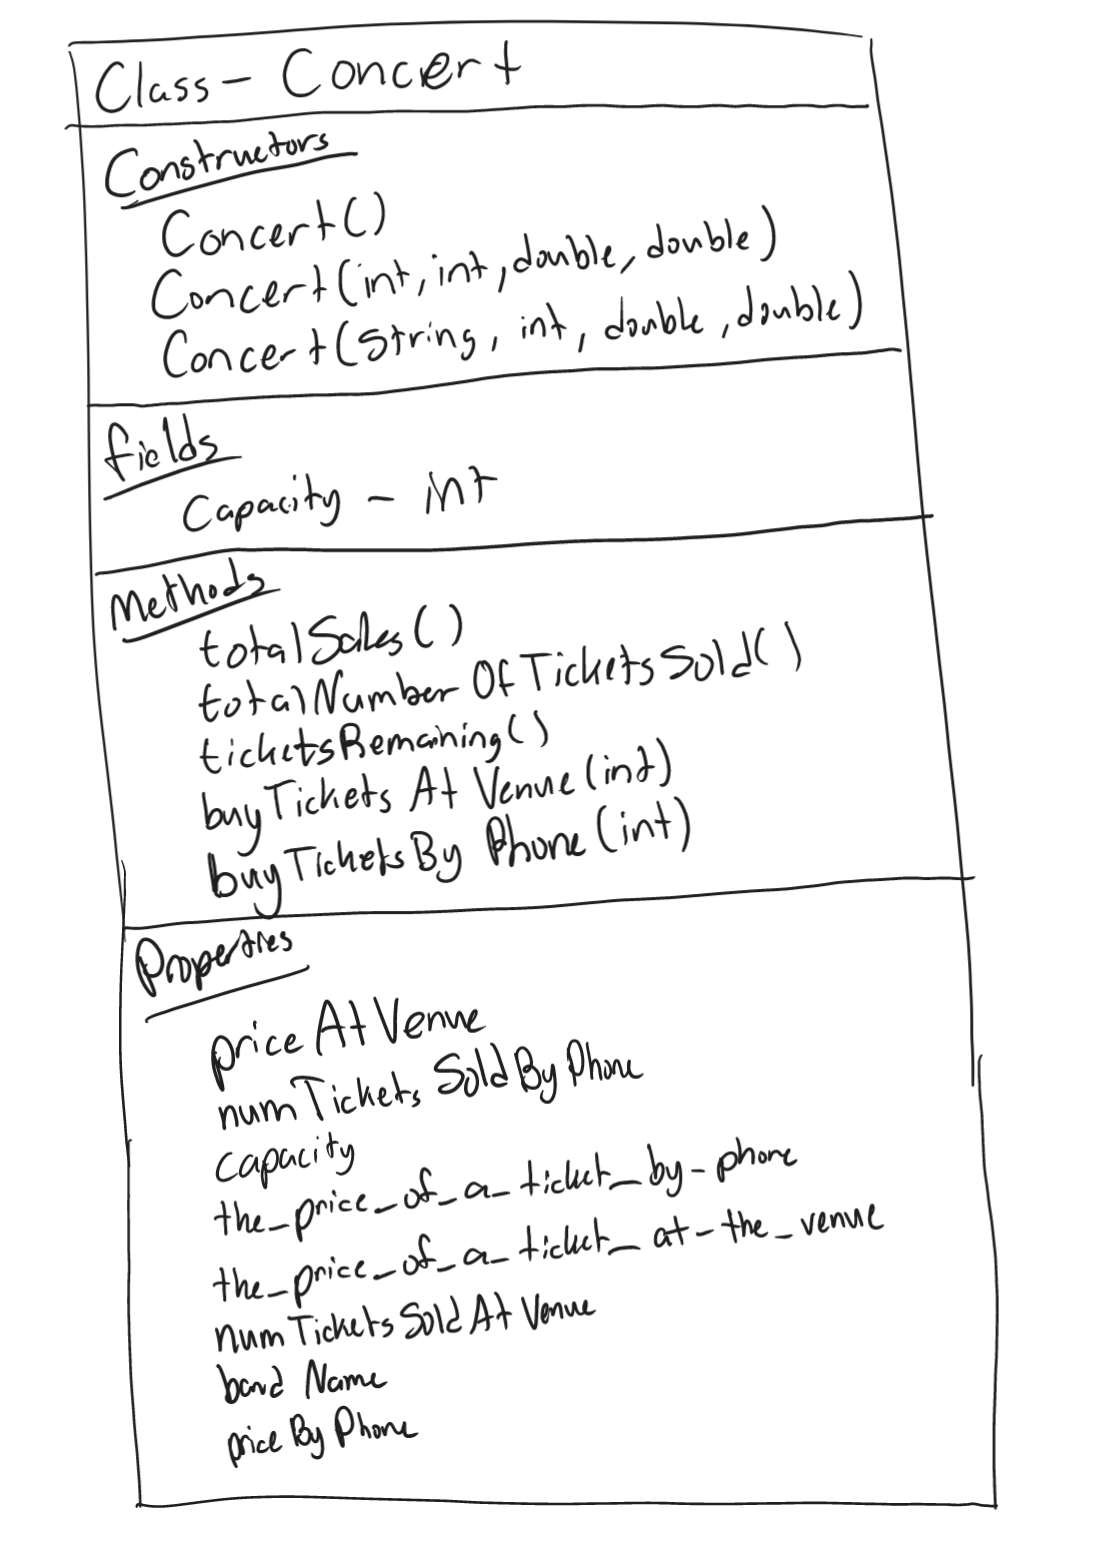 Class - Concert
Constructors
Concert()
Concert(int, int, double, double)
Concert(string, int, double, double)
fields
Capacity - int
Methods
totalSales()
totalNumberOfTicketsSold()
ticketsRemaining()
buyTickets At Venue (int)
buyTicketsBy Phone (int)
Properties
price At Venue
numTickets SoldBy Phone
Capacity
the_price_of_a_ticket_by-phone
the_price_of_a_ticket_at-the_venue
numTicketsSoldAt Venue
band Name
price By Phone